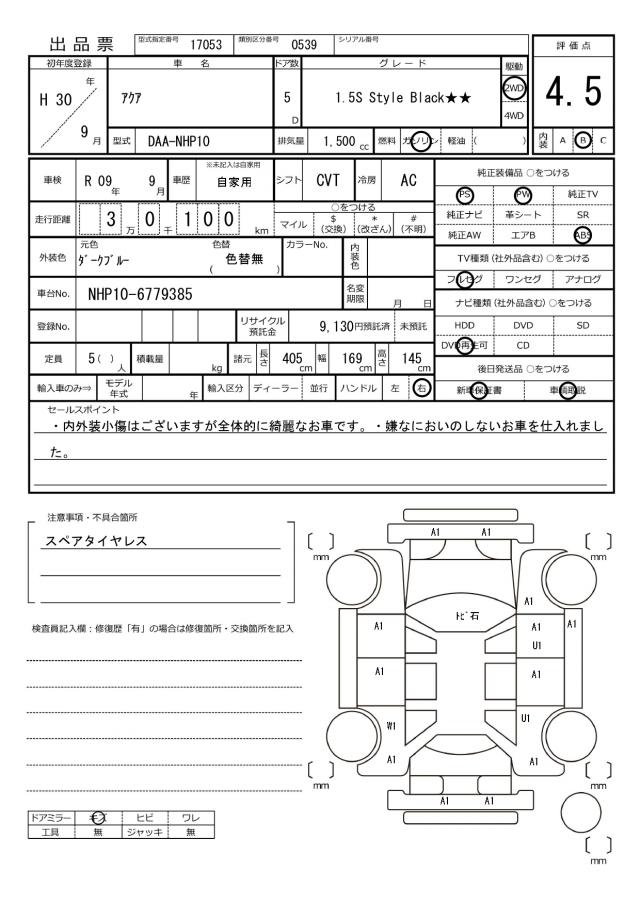 出品票 型式指定番号 17053 類別区分番号 0539 シリアル番号
評価点
4.5
内装 A B C
初年度登録 車名 ドア数 グレード 駆動
H 30 年 9 月 アクア 5 D 1.5S Style Black★★ 2WD 4WD
型式 DAA-NHP10 排気量 1,500 cc 燃料 ガソリン 軽油 ( )
車検 R 09 年 9 月 車歴 ※未記入は自家用 自家用 シフト CVT 冷房 AC
走行距離 3 万 0 千 1 0 0 km ○をつける
マイル $ (交換) * (改ざん) # (不明)
外装色 元色 ダークブルー 色替 ( 色替無 ) カラーNo. 内装色
車台No. NHP10-6779385 名変期限 月 日
登録No. リサイクル預託金 9,130円預託済 未預託
定員 5 ( ) 人 積載量 kg 諸元 長さ 405 cm 幅 169 cm 高さ 145 cm
輸入車のみ⇒ モデル年式 年 輸入区分 ディーラー 並行 ハンドル 左 右
純正装備品 ○をつける
PS PW 純正TV
純正ナビ 革シート SR
純正AW エアB ABS
TV種類 (社外品含む) ○をつける
フルセグ ワンセグ アナログ
ナビ種類 (社外品含む) ○をつける
HDD DVD SD
DVD再生可 CD
後日発送品 ○をつける
新車保証書 車輌取説
セールスポイント
・内外装小傷はございますが全体的に綺麗なお車です。・嫌なにおいのしないお車を仕入れまし
た。
注意事項・不具合箇所
スペアタイヤレス
検査員記入欄：修復歴「有」の場合は修復箇所・交換箇所を記入
ドアミラー キズ ヒビ ワレ
工具 無 ジャッキ 無
A1 A1
mm mm
A1
トビ石
A1 A1 A1
U1
A1 A1
W1 U1
A1 A1
mm mm
A1 A1
mm